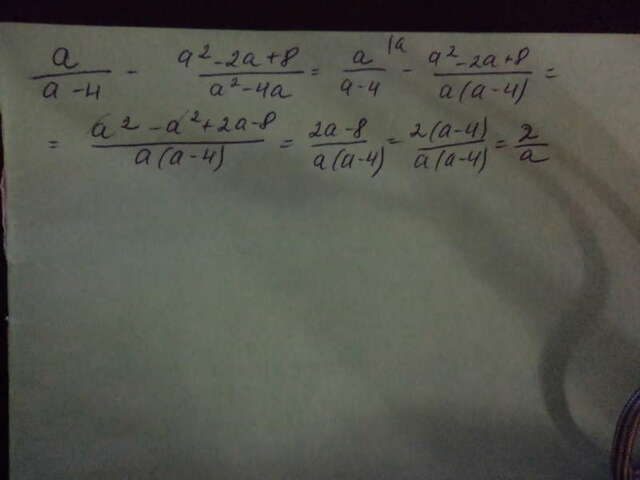 a/(a-4) - (a²-2a+8)/(a²-4a) = a/(a-4) |a - (a²-2a+8)/(a(a-4)) =
= (a²-a²+2a-8)/(a(a-4)) = (2a-8)/(a(a-4)) = 2(a-4)/(a(a-4)) = 2/a